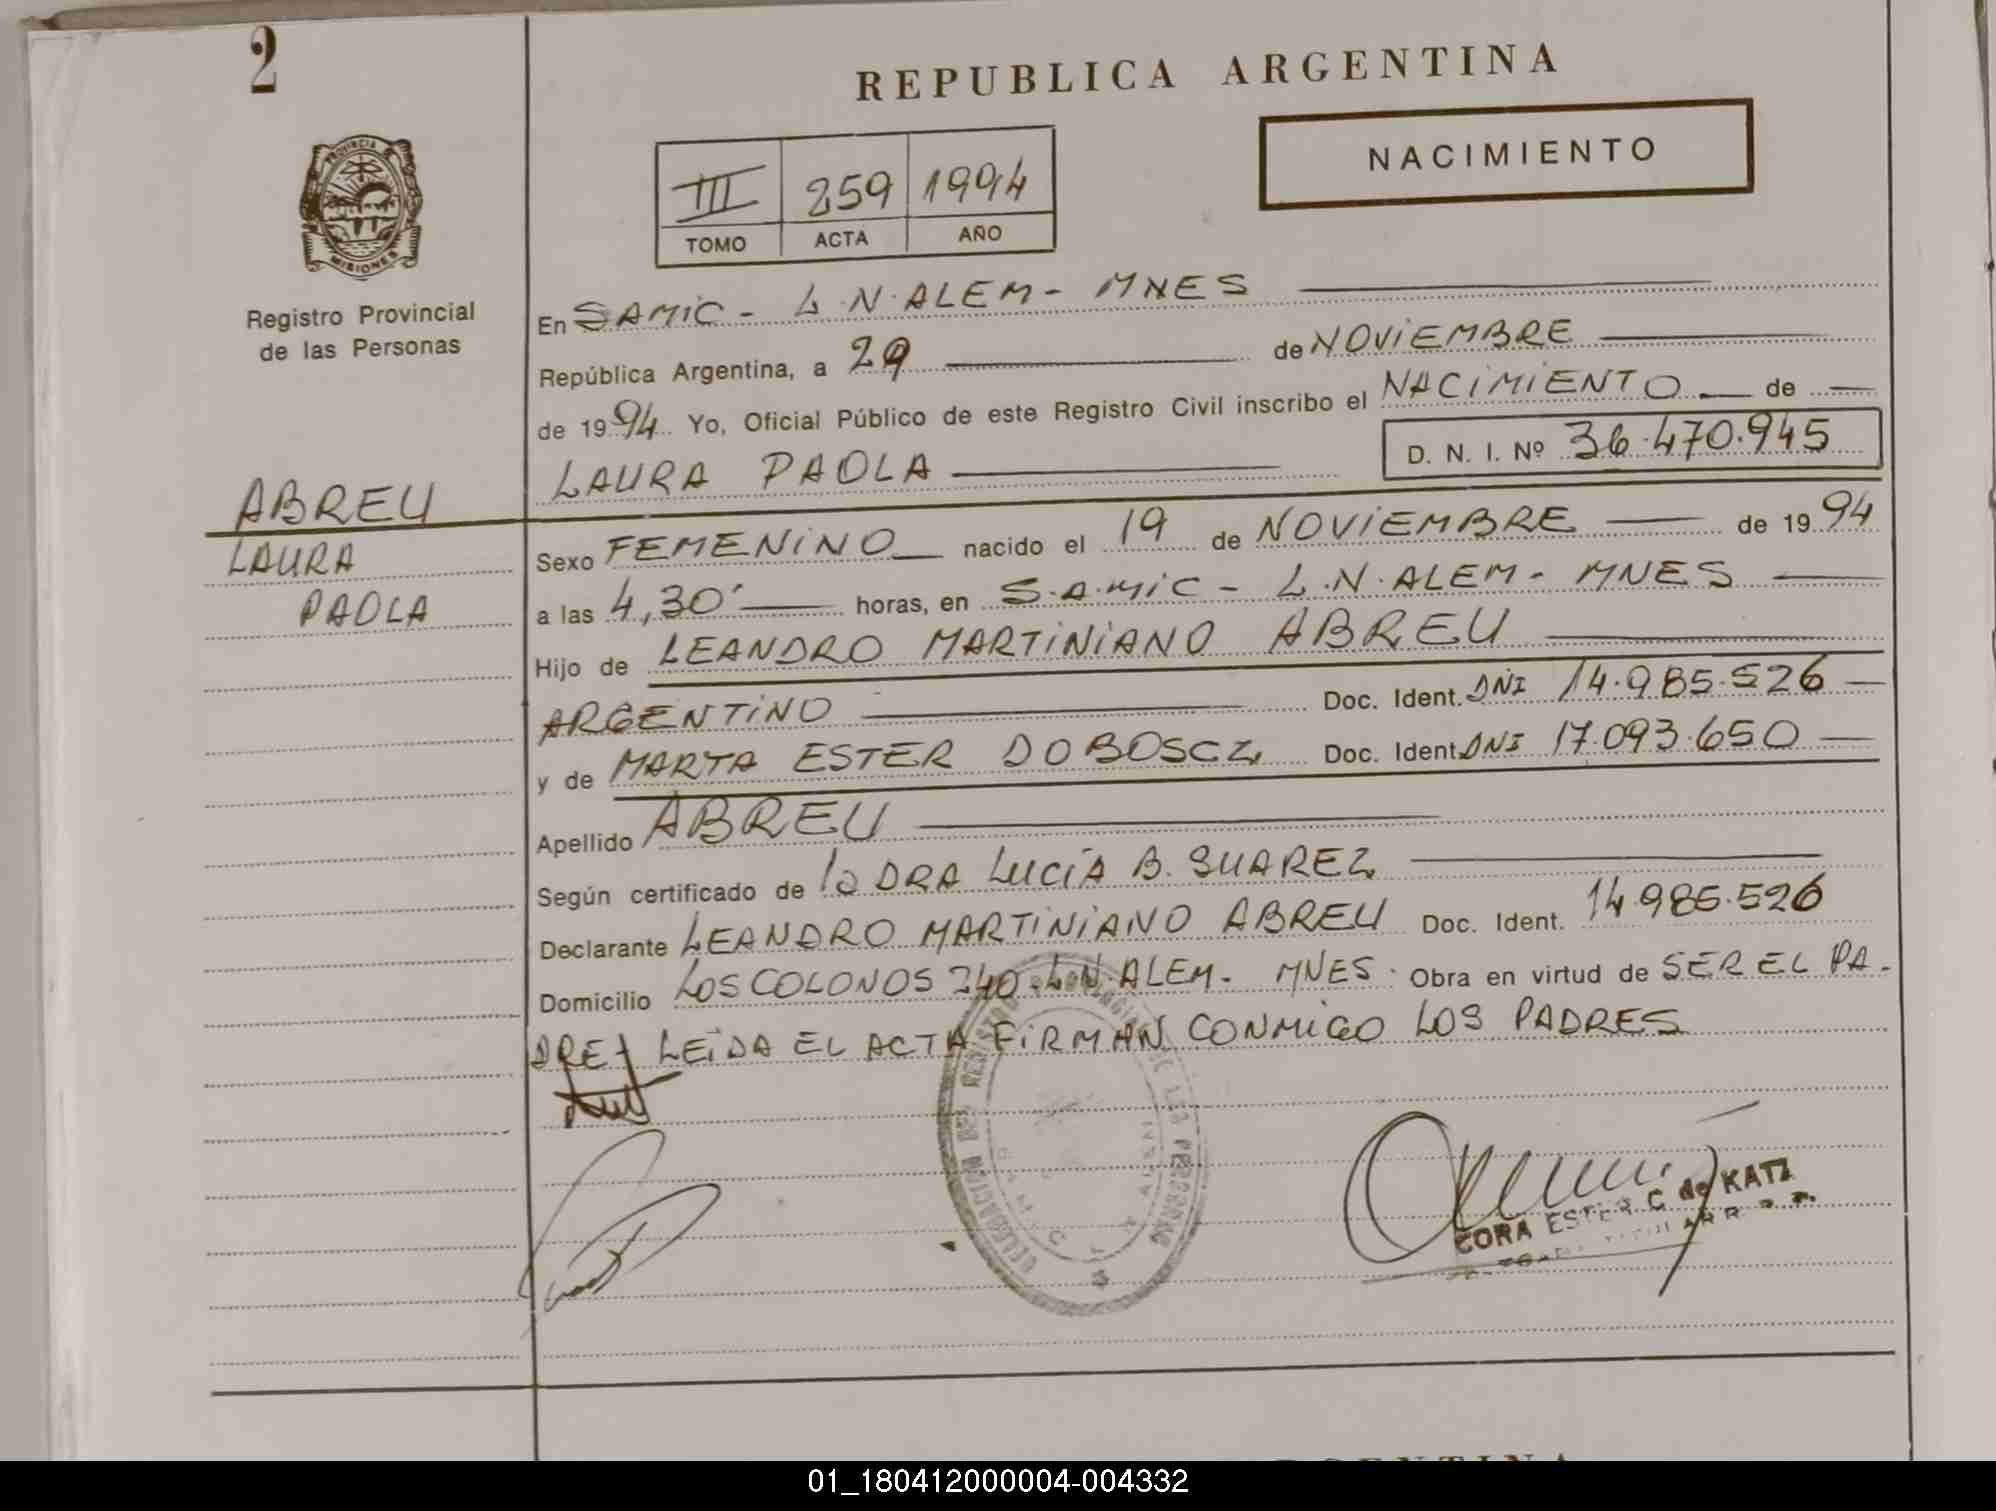 2
REPUBLICA ARGENTINA
NACIMIENTO
III 259 1994
TOMO ACTA AÑO
PROVINCIA
MISIONES
Registro Provincial
de las Personas
ABREU
LAURA
PAOLA
En SAMIC - L.N.ALEM - MNES
República Argentina, a 29 de NOVIEMBRE
de 1994 Yo, Oficial Público de este Registro Civil inscribo el NACIMIENTO de
LAURA PAOLA D. N. I. Nº 36.470.945
Sexo FEMENINO nacido el 19 de NOVIEMBRE de 1994
a las 4,30' horas, en S.A.MIC - L.N.ALEM - MNES
Hijo de LEANDRO MARTINIANO ABREU
ARGENTINO Doc. Ident. DNI 14.985.526
y de MARTA ESTER DOBOSCZ Doc. Ident. DNI 17.093.650
Apellido ABREU
Según certificado de la DRA LUCÍA B. SUAREZ
Declarante LEANDRO MARTINIANO ABREU Doc. Ident. 14.985.526
Domicilio LOS COLONOS 240 - L.N.ALEM - MNES. Obra en virtud de SER EL PA-
DRE LEIDA EL ACTA FIRMAN CONMIGO LOS PADRES
DELEGACION DEL REGISTRO PROVINCIAL DE LAS PERSONAS
CORA ESTER C de KATZ
01_180412000004-004332